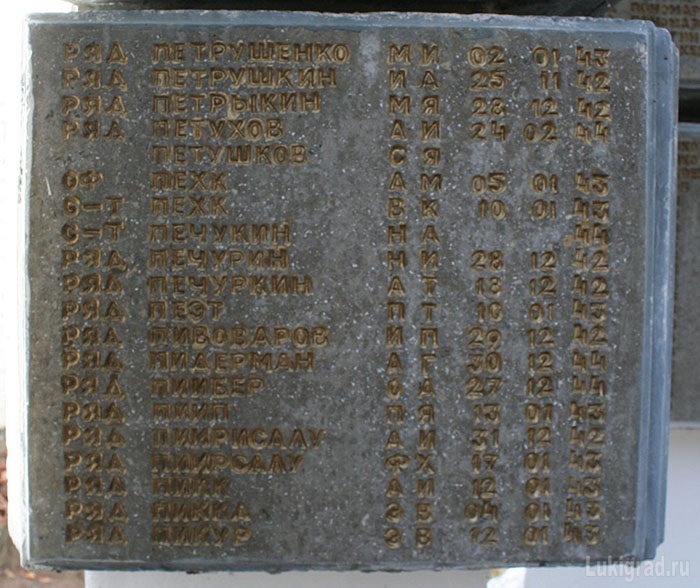 РЯД ПЕТРУШЕНКО М И 02 01 43
РЯД ПЕТРУШКИН И А 25 11 42
РЯД ПЕТРЫКИН М Я 28 12 42
РЯД ПЕТУХОВ А И 24 02 44
ПЕТУШКОВ С Я
ОФ ПЕХК А М 05 01 43
С-Т ПЕХК В К 10 01 43
С-Т ПЕЧУКИН Н А 44
РЯД ПЕЧУРИН Н И 28 12 42
РЯД ПЕЧУРКИН А Т 18 12 42
РЯД ПЕЭТ П Т 10 01 43
РЯД ПИВОВАРОВ И П 29 12 42
РЯД ПИДЕРМАН А Г 30 12 44
РЯД ПИИБЕР О А 27 12 44
РЯД ПИИП П Я 13 01 43
РЯД ПИИРИСАЛУ А И 31 12 42
РЯД ПИИРСАЛУ Ф Х 17 01 43
РЯД ПИИК А И 12 01 43
РЯД ПИККА Э Б 04 01 43
РЯД ПИКУР Э В 12 01 43
Lukigrad.ru